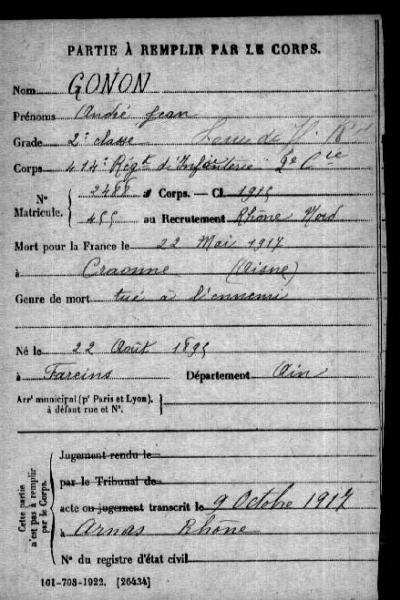 PARTIE À REMPLIR PAR LE CORPS.
Nom GONON
Prénoms André Jean
Grade 2e classe
Corps 414e Régt d'Infanterie 2e Cie
N° Matricule. { 2488 au Corps. — Cl. 1915
455 au Recrutement Rhône Nord
Mort pour la France le 22 Mai 1917
à Craonne (Aisne)
Genre de mort tué à l'ennemi
Né le 22 Août 1895
à Fareins Département Ain
Arrt municipal (pr Paris et Lyon), à défaut rue et N°.
Cette partie n'est pas à remplir par le Corps.
Jugement rendu le
par le Tribunal de
acte ou jugement transcrit le 9 Octobre 1917
à Arnas Rhône
N° du registre d'état civil
101-708-1922. [26434]